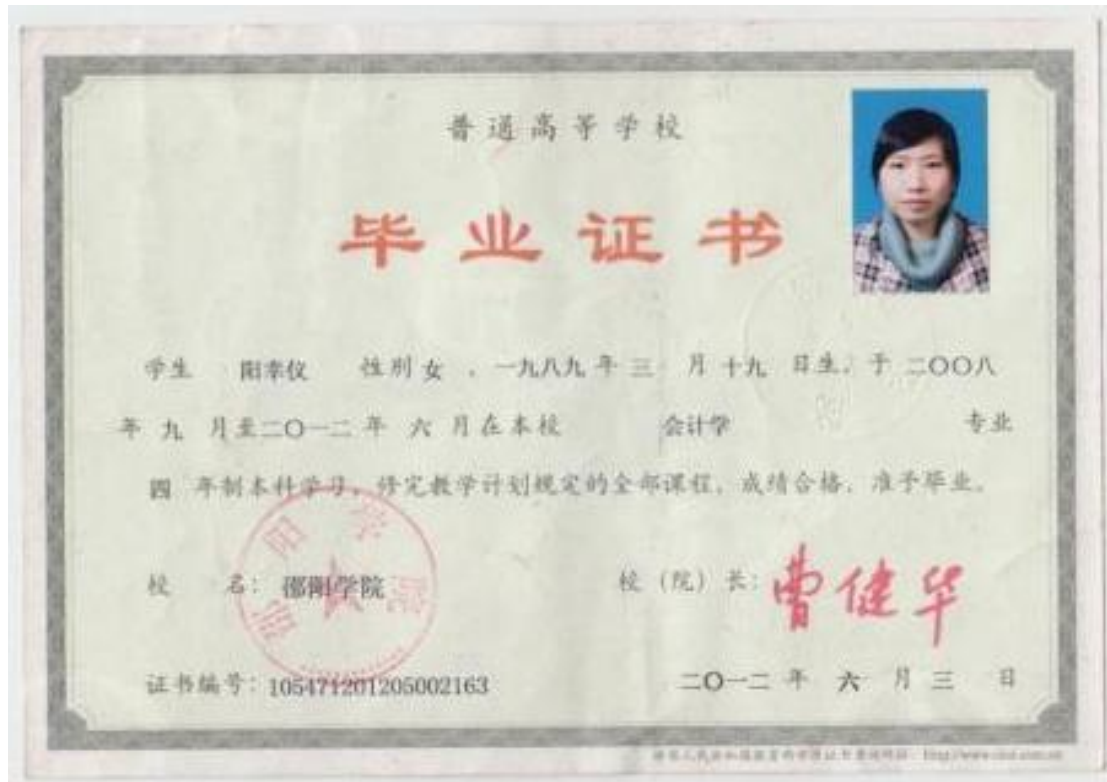 普通高等学校
毕业证书
学生 阳幸仪 性别 女 ，一九八九 年 三 月 十九 日生，于 二〇〇八
年 九 月至二〇一二 年 六 月在本校 会计学 专业
四 年制本科学习，修完教学计划规定的全部课程，成绩合格，准予毕业。
校 名：邵阳学院 校（院）长：曹健华
邵阳学院
证书编号：105471201205002163 二〇一二 年 六 月 三 日